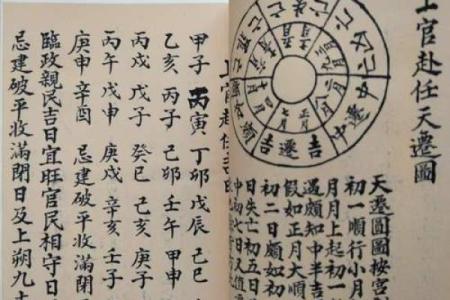 上官赴任天遷圖
亡 遷 中 吉 遷 吉 中
天遷圖圖按宮
初一順行小月
月月上起初一
遇頗知中半吉
假如正月大順
初二日頗如初
日失亡初五日
上官赴任
甲子 丙寅 丁卯 戊辰 己
乙亥 丙子 己卯 壬午 甲申
丙戌 戊子 癸巳 己亥 庚子
丙午 戊申 庚戌 辛亥 壬子
庚申 辛酉 忌建破平收滿閉
臨政親民吉日宜旺官民相守日
忌建破平收滿閉日及上朔九